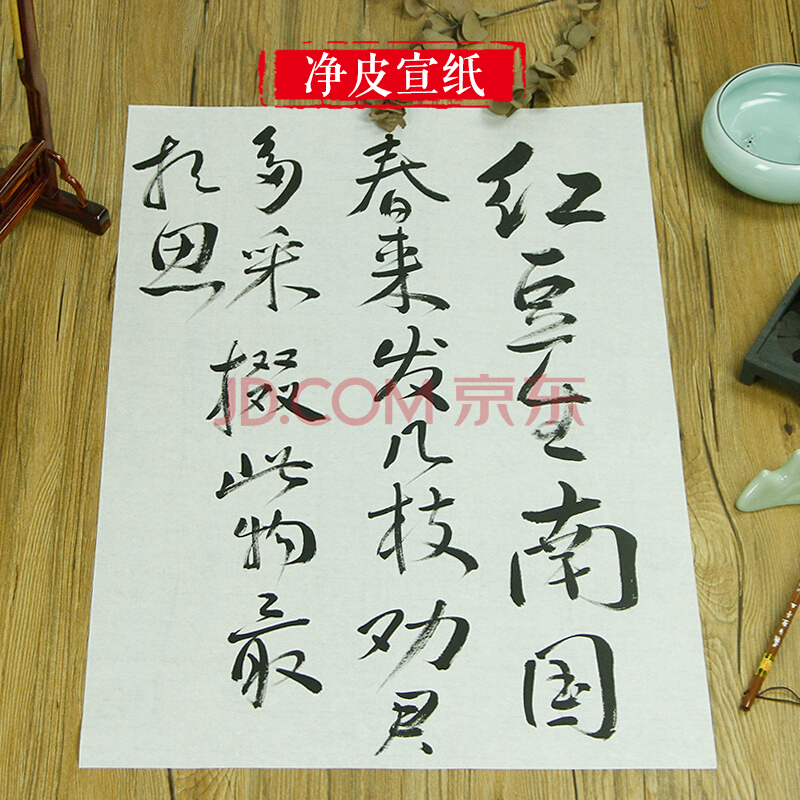 净皮宣纸
红豆生南国
春来发几枝劝君
多采撷此物最
相思
JD.COM 京东